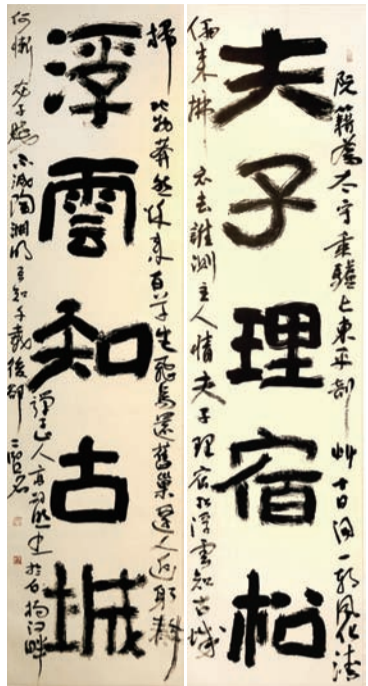 夫子理宿松
阮籍為太守乘驢上東平剖竹十日間一朝風化清
偶來拂衣去誰測主人情夫子理宿松浮雲知古城
浮雲知古城
掃地物莽然秋來百草生飛鳥還舊巢遷人返躬耕
何慚宓子賤不減陶淵明吾知千載後卻
二賢名